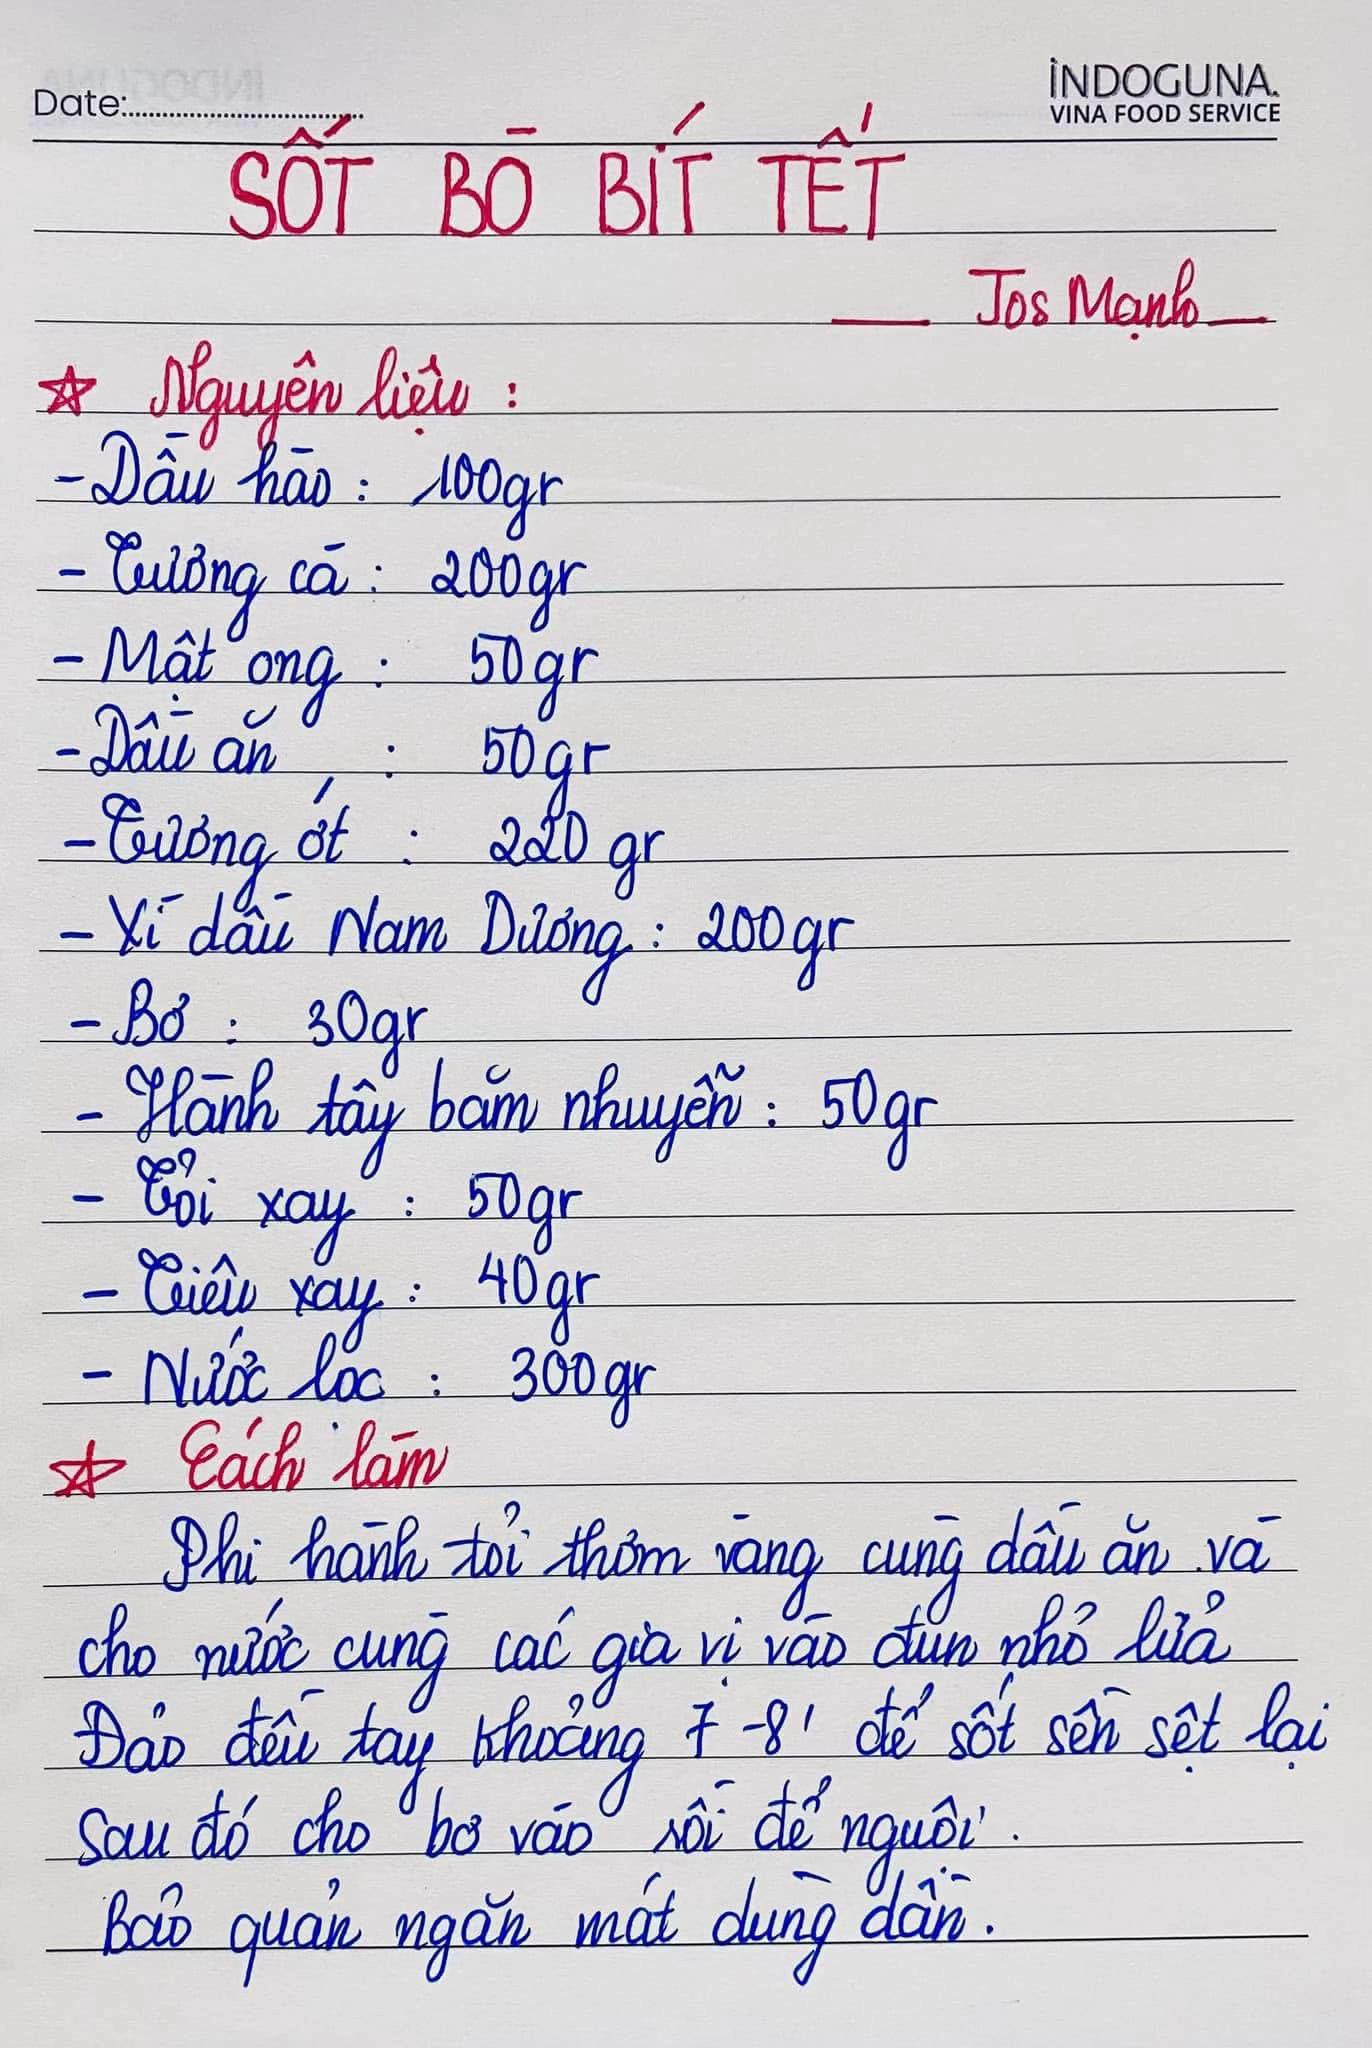 Date:
İNDOGUNA.
VINA FOOD SERVICE
SỐT BÒ BÍT TẾT
Jos Mạnh
Nguyên liệu :
- Dầu hào : 100gr
- Tương cà : 200gr
- Mật ong : 50gr
- Dầu ăn : 50gr
- Tương ớt : 220 gr
- Xì dầu Nam Dương : 200gr
- Bơ : 30gr
- Hành tây băm nhuyễn : 50gr
- Tỏi xay : 50gr
- Tiêu xay : 40gr
- Nước lọc : 300gr
Cách làm
Phi hành tỏi thơm vàng cùng dầu ăn và
cho nước cùng các gia vị vào đun nhỏ lửa
Đảo đều tay khoảng 7 - 8' để sốt sền sệt lại
sau đó cho bơ vào rồi để nguôi.
Bảo quản ngăn mát dùng dần.